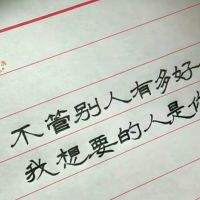 不管别人有多好
我想要的人是你